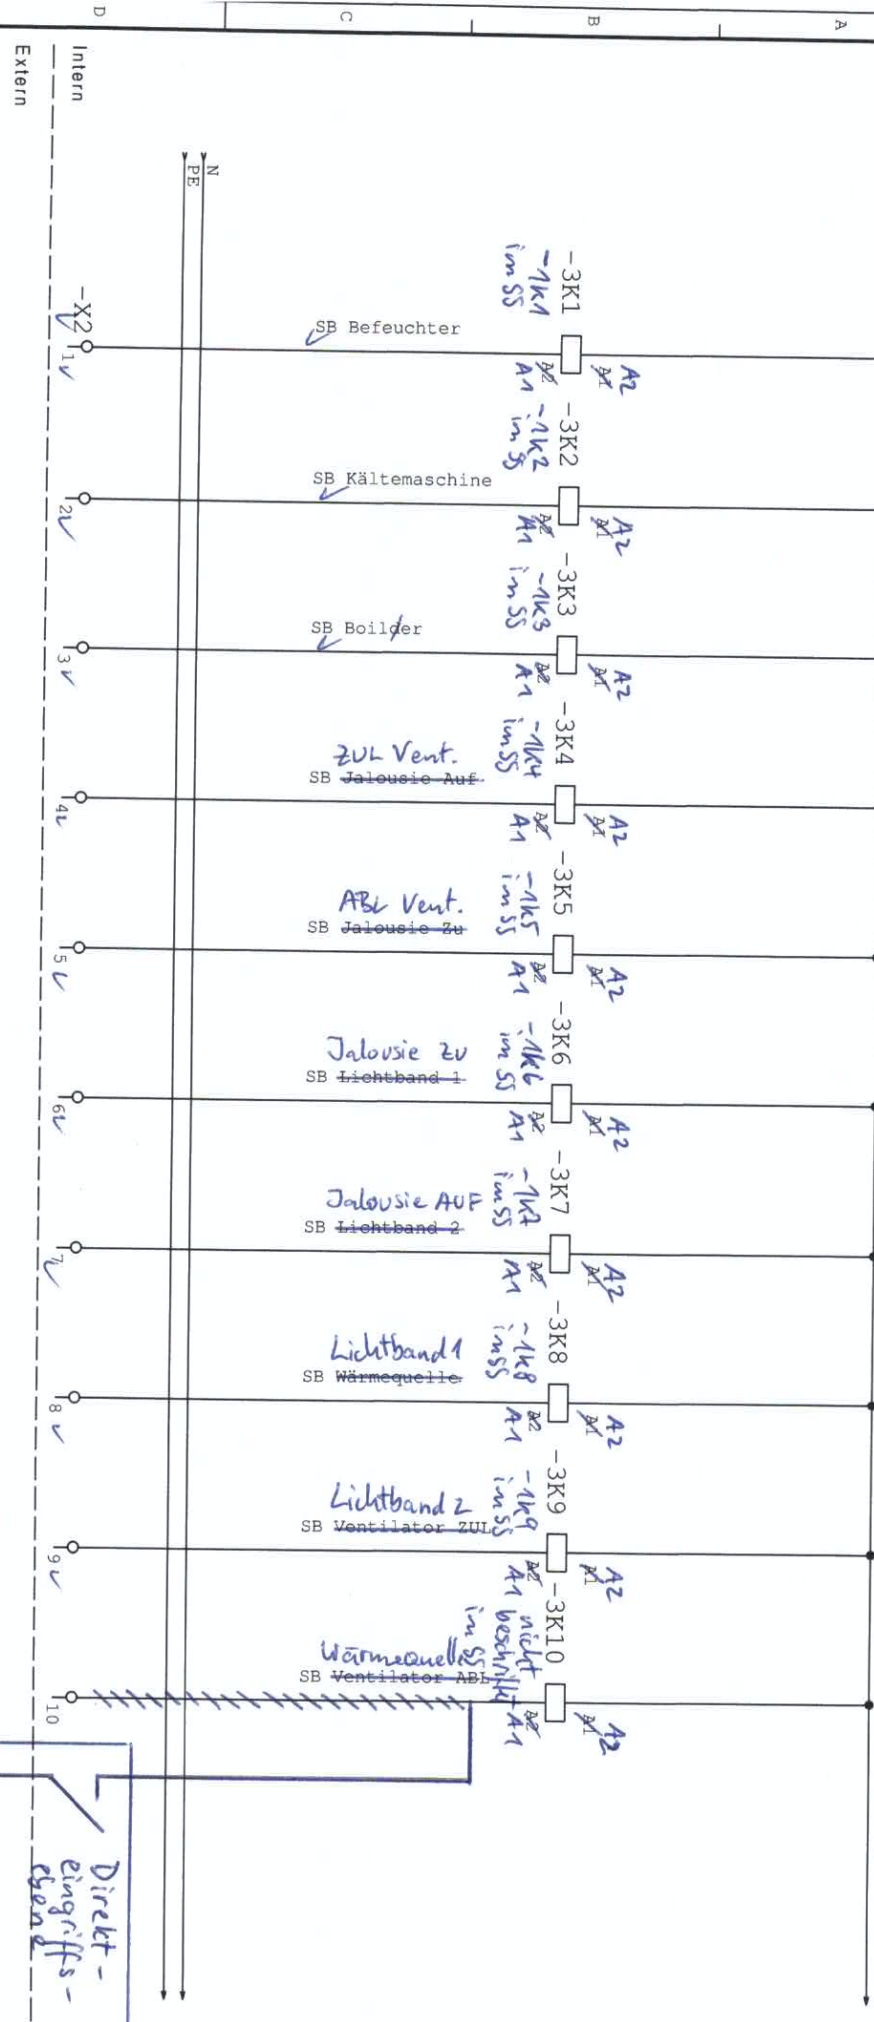 D
C
B
A
Intern
Extern
N
PE
-X2
-3K1
-1K1
im SS
SB Befeuchter
A1
A2
A2
A1
1
-3K2
-1K2
im SS
SB Kältemaschine
A1
A2
A2
A1
2
-3K3
-1K3
im SS
SB Boilder
A1
A2
A2
A1
3
-3K4
-1K4
im SS
ZUL Vent.
SB Jalousie Auf
A1
A2
A2
A1
4
-3K5
-1K5
im SS
ABL Vent.
SB Jalousie Zu
A1
A2
A2
A1
5
-3K6
-1K6
im SS
Jalousie ZU
SB Lichtband 1
A1
A2
A2
A1
6
-3K7
-1K7
im SS
Jalousie AUF
SB Lichtband 2
A1
A2
A2
A1
7
-3K8
-1K8
im SS
Lichtband 1
SB Wärmequelle
A1
A2
A2
A1
8
-3K9
-1K9
im SS
Lichtband 2
SB Ventilator ZUL
A1
A2
A2
A1
9
-3K10
nicht
beschriftet
im SS
Wärmequelle
SB Ventilator ABL
A1
A2
A2
A1
10
Direkt-
eingriffs-
ebene